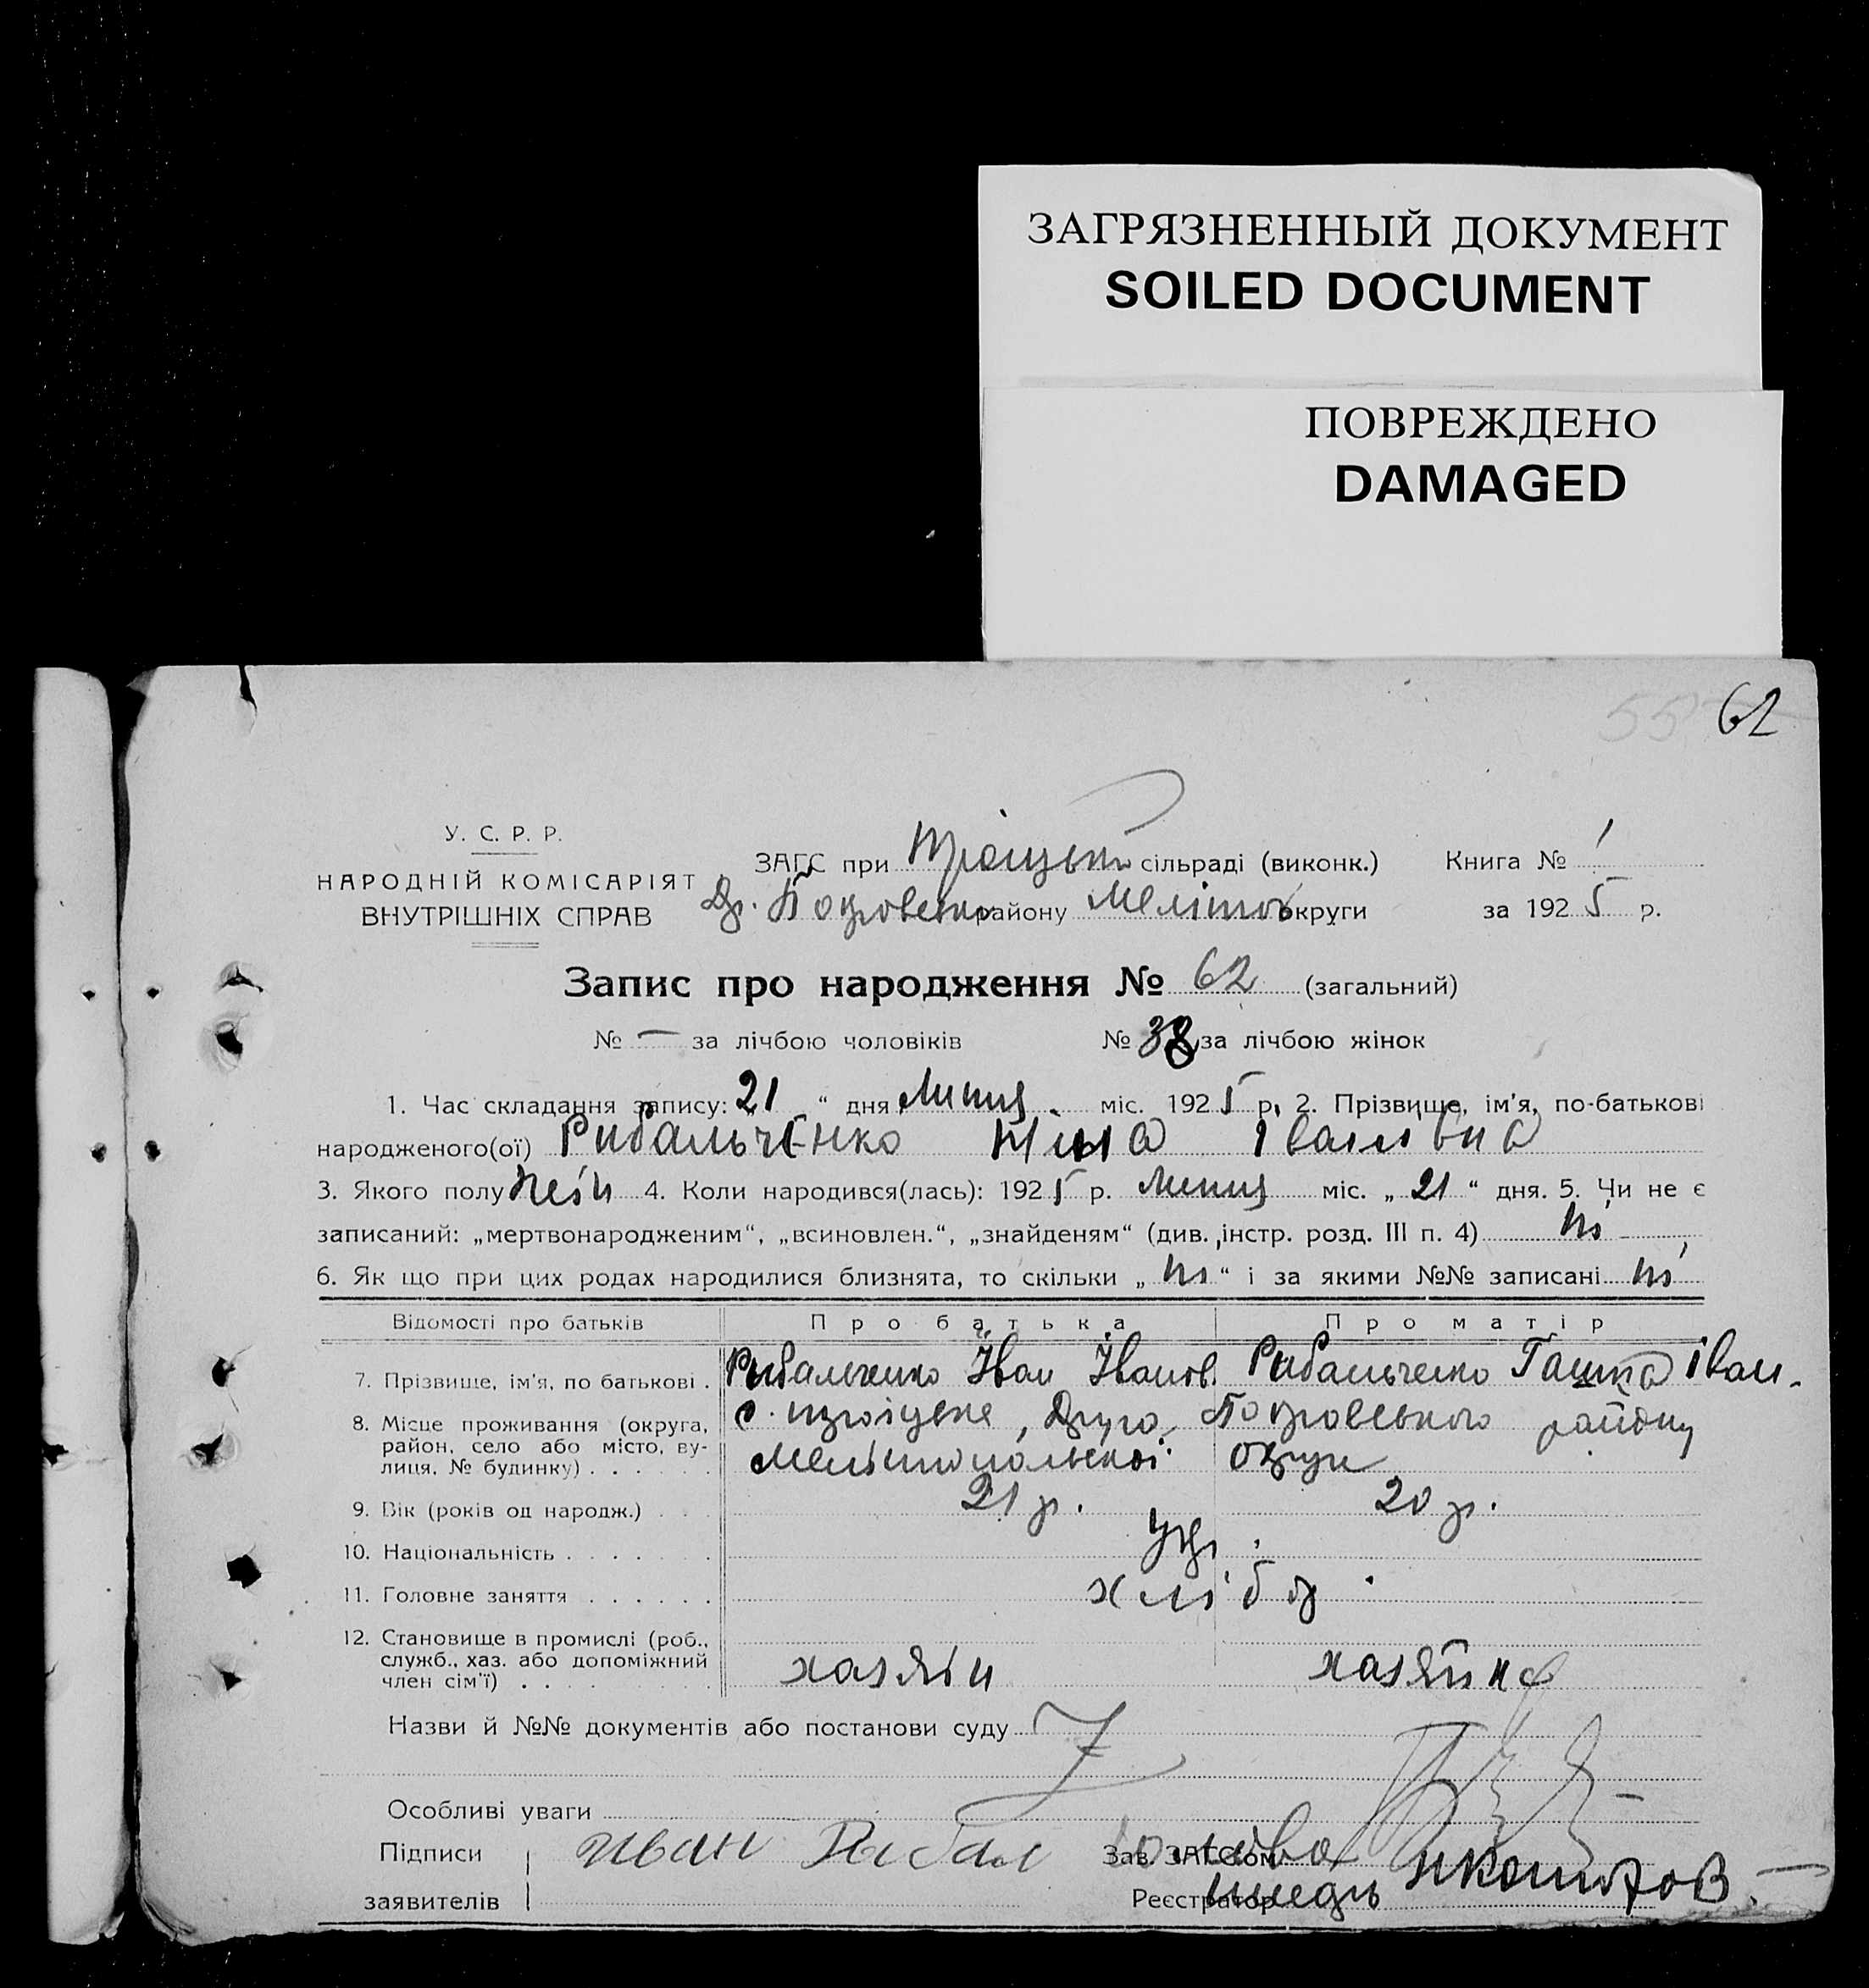 ЗАГРЯЗНЕННЫЙ ДОКУМЕНТ
SOILED DOCUMENT
ПОВРЕЖДЕНО
DAMAGED
55 62
У. С. Р. Р.
НАРОДНІЙ КОМІСАРІЯТ
ВНУТРІШНІХ СПРАВ
ЗАГС при Троіцькі сільраді (виконк.) Книга № 1
Др. Покровськ району Меліто округи за 1925 р.
Запис про народження № 62 (загальний)
№ — за лічбою чоловіків № 38 за лічбою жінок
1. Час складання запису: 21 “ дня Липня міс. 1925 р. 2. Прізвище, ім'я, по-батькові
народженого(ої) Рибальченко Ніна Івановна
3. Якого полу жін 4. Коли народився(лась): 1925 р. Липня міс. „ 21 “ дня. 5. Чи не є
записаний: „мертвонародженим“, „всиновлен.“, „знайденям“ (див. інстр. розд. III п. 4) ні
6. Як що при цих родах народилися близнята, то скільки „ ні “ і за якими №№ записані ні
Відомості про батьків Про батька Про матір
7. Прізвище, ім'я, по батькові . Рибальченко Іван Іванов. Рибальченко Гашка Іван.
8. Місце проживання (округа, район, село або місто, вулиця, № будинку) . . . . . с. Троіцьке, Друго Покровського району
Мелітопольскоі округи
9. Вік (років од народж.) . . . 21 р. 20 р.
10. Національність . . . . . . . Укр.
11. Головне заняття . . . . . . хлібор.
12. Становище в промислі (роб., служб., хаз. або допоміжний член сім'ї) . . . . хазяін хазяйка
Назви й №№ документів або постанови суду
Особливі уваги
Підписи Иван Рибал Зав. ЗАГС'ом Голова
заявителів Реєстратор